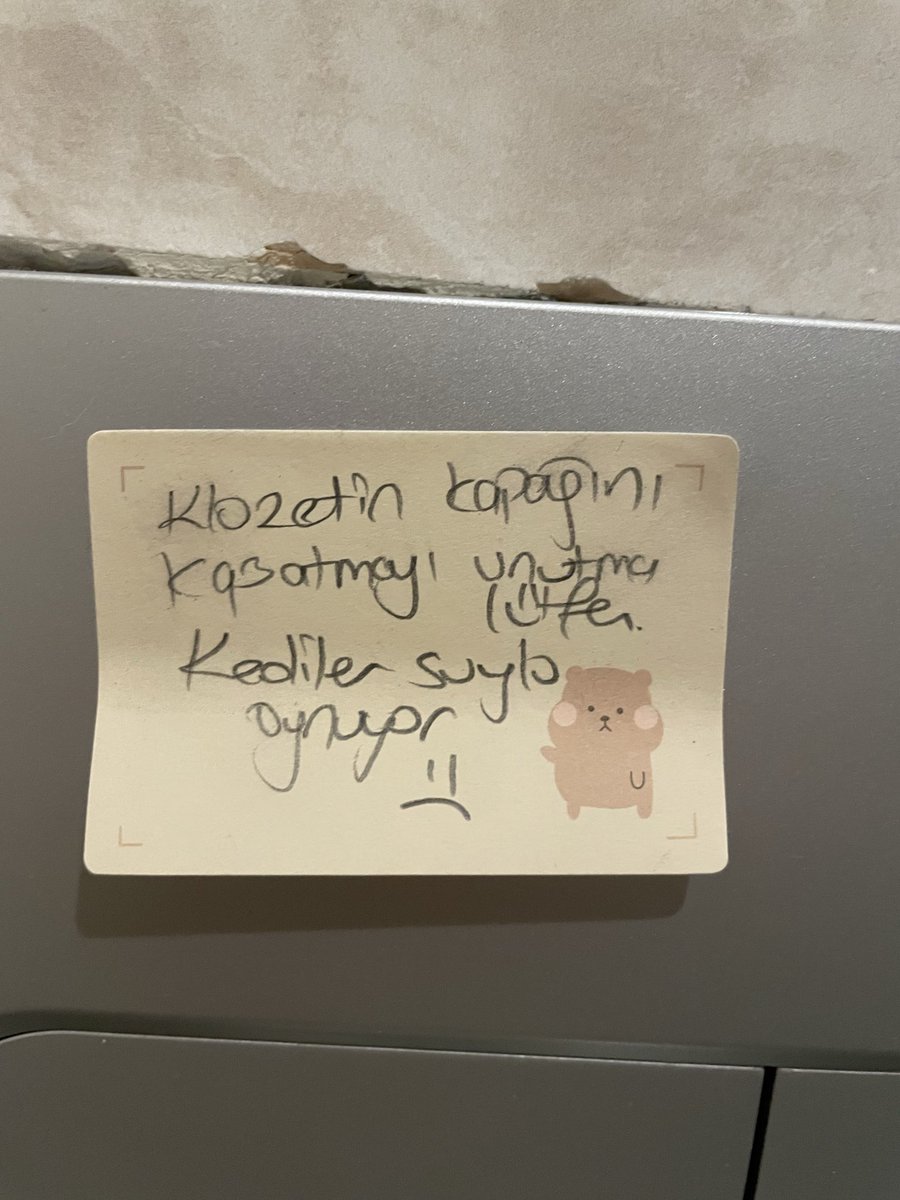 Klozetin kapağını
kapatmayı unutma
lütfen.
Kediler suyla
oynuyor